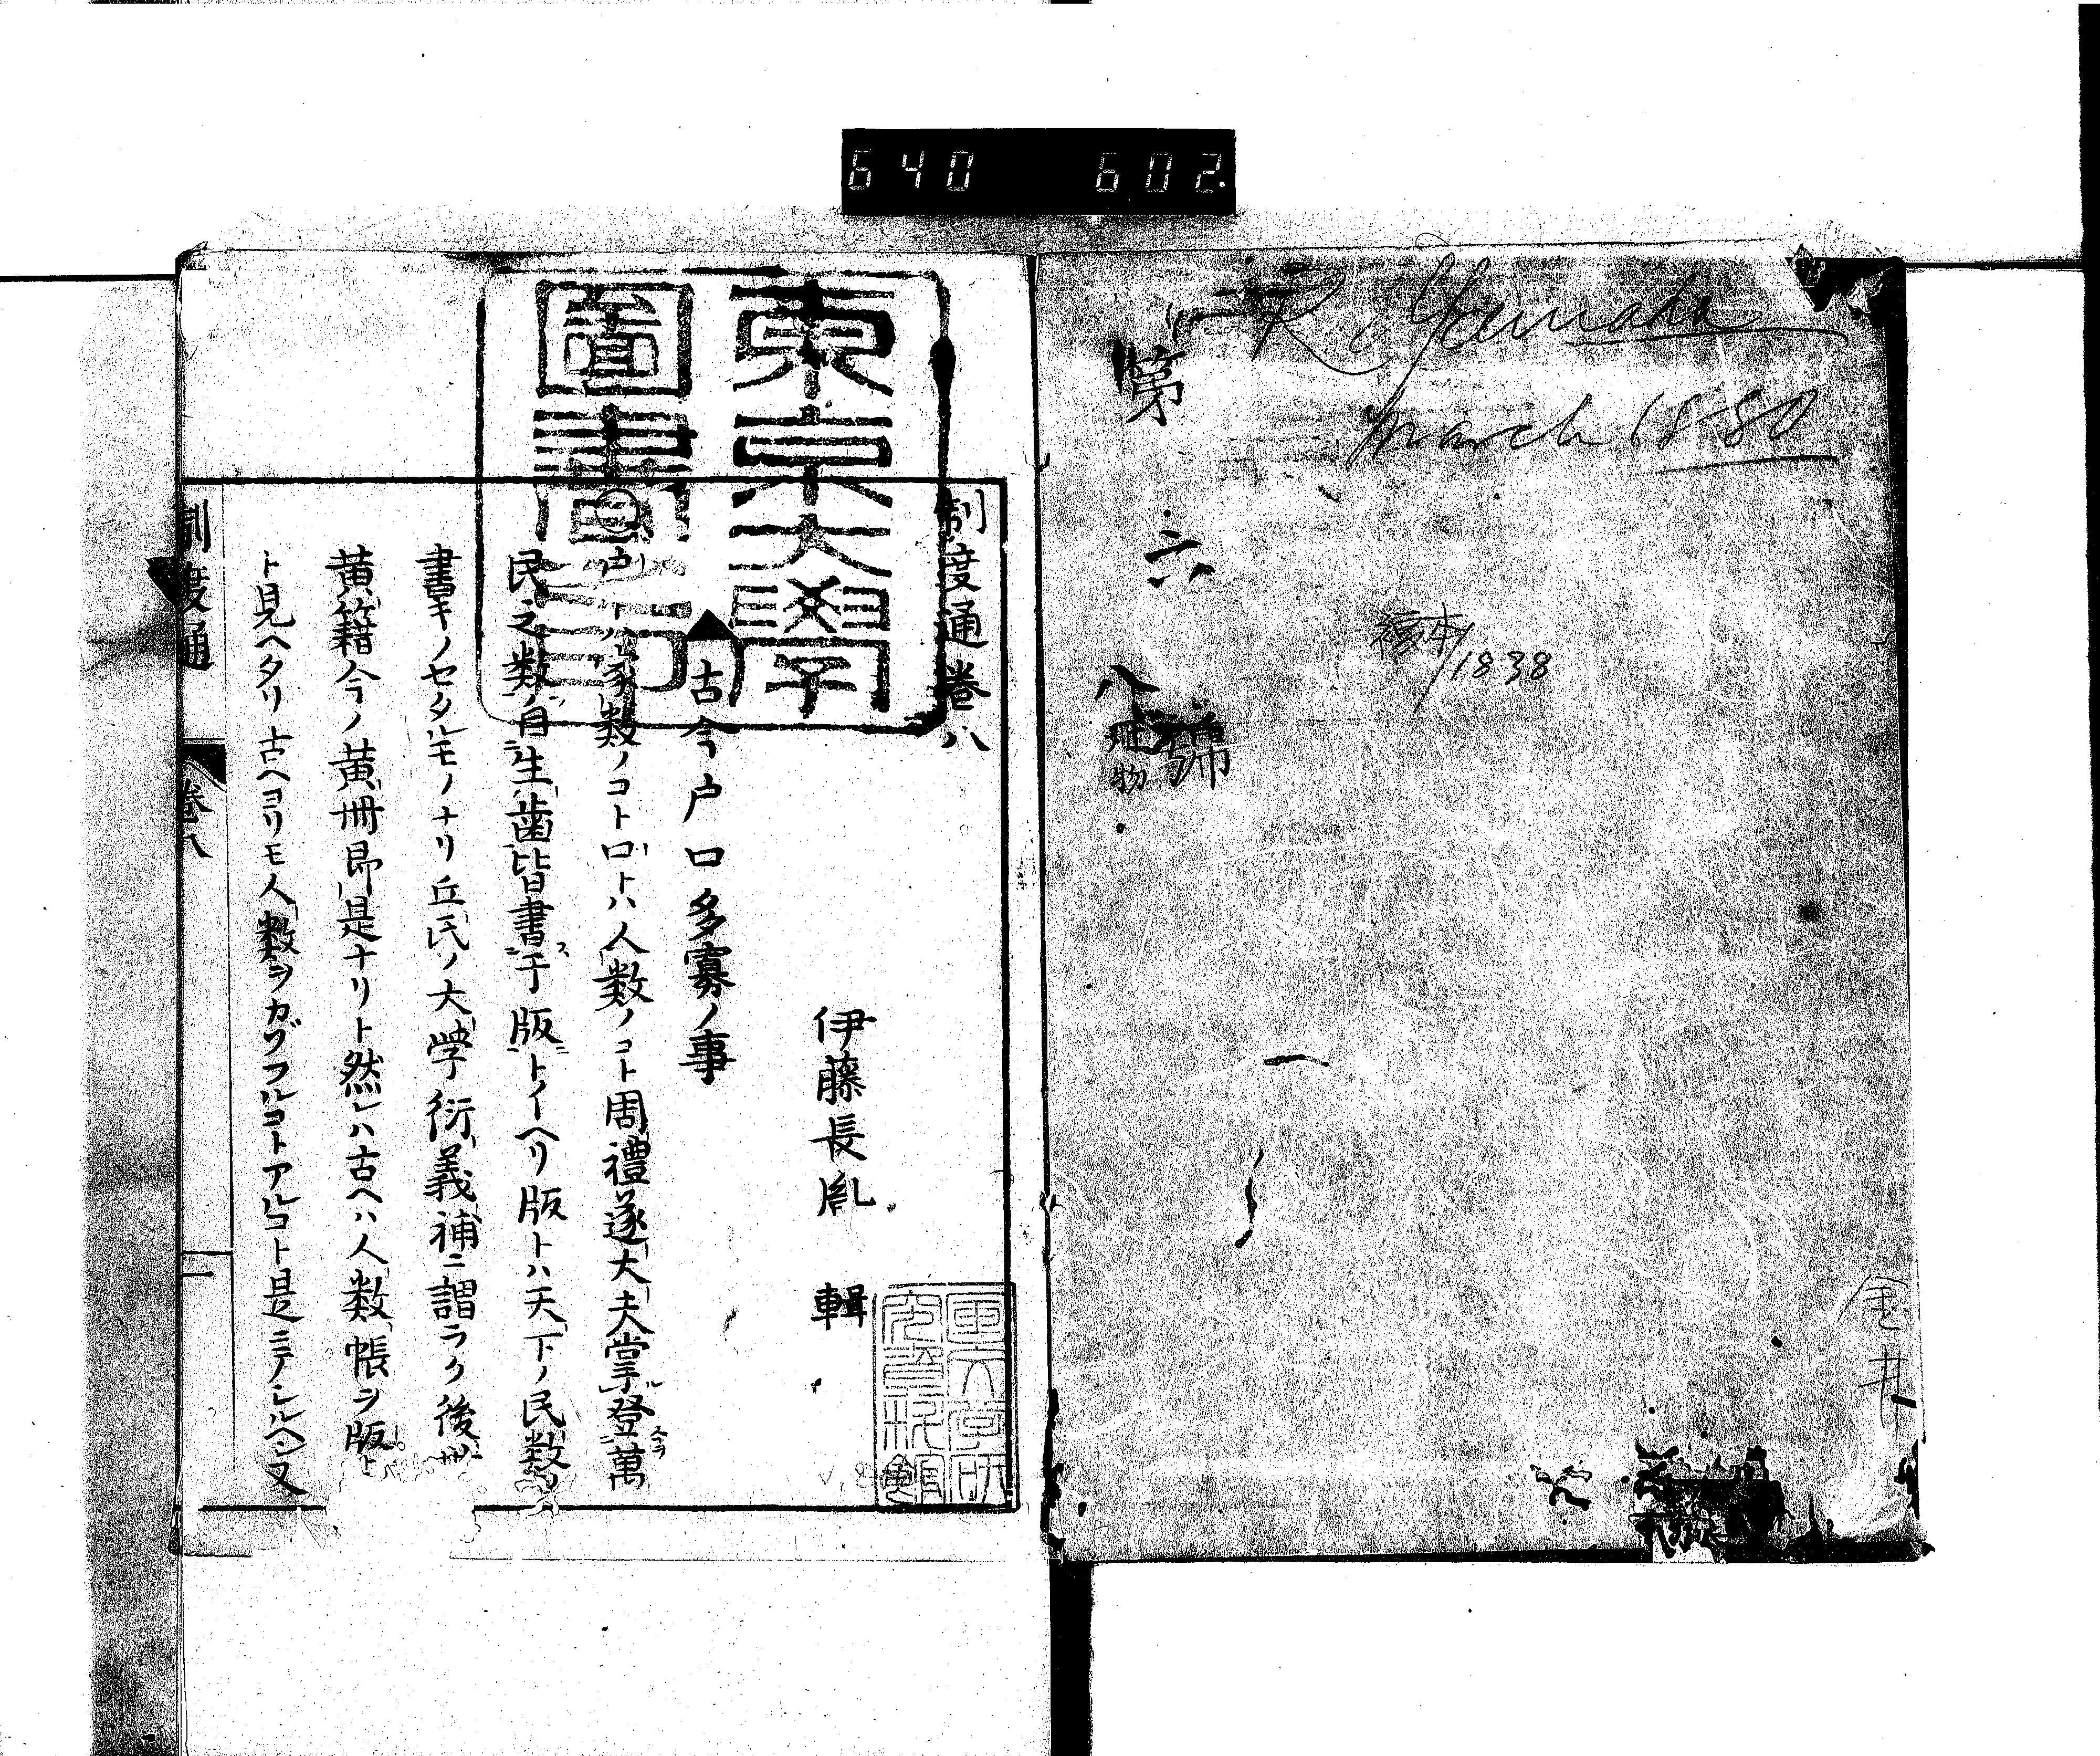 640 602.
R. Yamada
March 1880
第六號
八冊物
1838
金井
東京大學
圖書之印
制度通卷八
伊藤長胤 輯
古今戸口多寡ノ事
戸トハ家数ノコト口トハ人数ノコト周禮遂大夫掌登萬
民之数自生歯皆書于版トイヘリ版トハ天下ノ民数ヲ
書キノセタルモノナリ丘氏ノ大学衍義補ニ謂ラク後世
黄籍今ノ黄冊即是ナリト然レハ古ヘハ人数帳ヲ版ト
ト見ヘタリ古ヘヨリモ人数ヲカゾフルコトアルコト是ニテシルヘシ又
制度通 卷八 一